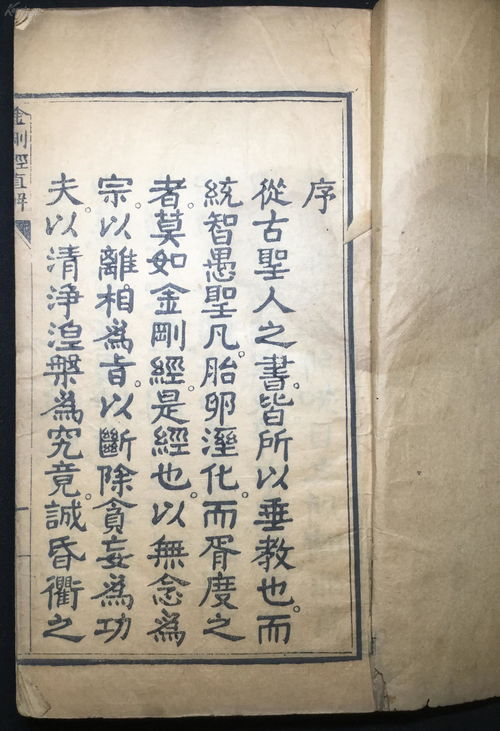 序
從古聖人之書。皆所以垂教也。而
統智愚聖凡。胎卵溼化。而胥度之
者。莫如金剛經。是經也。以無念為
宗。以離相為旨。以斷除貪妄為功
夫。以清淨湼槃為究竟。誠昏衢之
金剛經直解